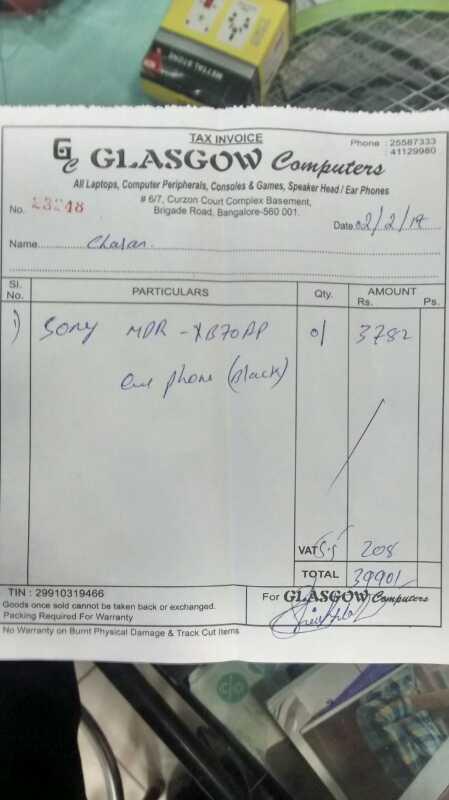 METTAL STONE
TAX INVOICE
Phone : 25587333
: 41129980
GC GLASGOW Computers
All Laptops, Computer Peripherals, Consoles & Games, Speaker Head / Ear Phones
# 6/7, Curzon Court Complex Basement,
Brigade Road, Bangalore-560 001.
No. 23248
Date 02/2/17
Name Chalan.
Sl. No. PARTICULARS Qty. AMOUNT Rs. Ps.
1) Sony MDR-XB70AP 01 3782
ear phone (Black)
VAT 5.5 208
TOTAL 3990/-
TIN : 29910319466
For GLASGOW Computers
Goods once sold cannot be taken back or exchanged.
Packing Required For Warranty
No Warranty on Burnt Physical Damage & Track Cut Items